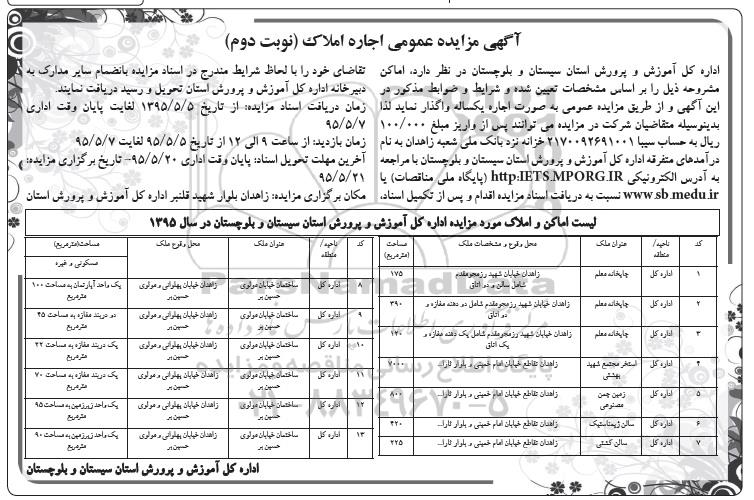 آگهی مزایده عمومی اجاره املاک (نوبت دوم)
اداره کل آموزش و پرورش استان سیستان و بلوچستان در نظر دارد، اماکن
مشروحه ذیل را بر اساس مشخصات تعیین شده و شرایط و ضوابط مذکور در
این آگهی و از طریق مزایده عمومی به صورت اجاره یکساله واگذار نماید لذا
بدینوسیله متقاضیان شرکت در مزایده می توانند پس از واریز مبلغ ۱۰۰/۰۰۰
ریال به حساب سیبا ۲۱۷۰۰۹۲۶۹۱۰۰۱ خزانه نزد بانک ملی شعبه زاهدان به نام
درآمدهای متفرقه اداره کل آموزش و پرورش استان سیستان و بلوچستان با مراجعه
به آدرس الکترونیکی http:IETS.MPORG.IR (پایگاه ملی مناقصات) یا
www.sb.medu.ir نسبت به دریافت اسناد مزایده اقدام و پس از تکمیل اسناد،
تقاضای خود را با لحاظ شرایط مندرج در اسناد مزایده بانضمام سایر مدارک به
دبیرخانه اداره کل آموزش و پرورش استان تحویل و رسید دریافت نمایند.
زمان دریافت اسناد مزایده: از تاریخ ۱۳۹۵/۵/۵ لغایت پایان وقت اداری
۹۵/۵/۷
زمان بازدید: از ساعت ۹ الی ۱۲ از تاریخ ۹۵/۵/۵ لغایت ۹۵/۵/۷
آخرین مهلت تحویل اسناد: پایان وقت اداری ۹۵/۵/۲۰– تاریخ برگزاری مزایده:
۹۵/۵/۲۱
مکان برگزاری مزایده: زاهدان بلوار شهید قلنبر اداره کل آموزش و پرورش استان
لیست اماکن و املاک مورد مزایده اداره کل آموزش و پرورش استان سیستان و بلوچستان در سال ۱۳۹۵
کد ناحیه/منطقه عنوان ملک محل وقوع و مشخصات ملک مساحت (مترمربع)
۱ اداره کل چاپخانه معلم زاهدان خیابان شهید رزمجومقدم شامل سالن و دو اتاق ۱۷۵
۲ اداره کل چاپخانه معلم زاهدان خیابان شهید رزمجومقدم شامل دو دهنه مغازه و دو اتاق ۳۹۰
۳ اداره کل چاپخانه معلم زاهدان خیابان شهید رزمجومقدم شامل یک دهنه مغازه و یک اتاق ۱۲۰
۴ اداره کل استخر مجتمع شهید بهشتی زاهدان تقاطع خیابان امام خمینی و بلوار ثارا... ۷۰۰۰
۵ اداره کل زمین چمن مصنوعی زاهدان تقاطع خیابان امام خمینی و بلوار ثارا... ۸۰۰
۶ اداره کل سالن ژیمناستیک زاهدان تقاطع خیابان امام خمینی و بلوار ثارا... ۴۲۰
۷ اداره کل سالن کشتی زاهدان تقاطع خیابان امام خمینی و بلوار ثارا... ۲۲۵
کد ناحیه/منطقه عنوان ملک محل وقوع ملک مساحت(مترمربع) مسکونی و غیره
۸ اداره کل ساختمان خیابان مولوی حسین بر زاهدان خیابان پهلوانی و مولوی حسین بر یک واحد آپارتمان به مساحت ۱۰۰ مترمربع
۹ اداره کل ساختمان خیابان مولوی حسین بر زاهدان خیابان پهلوانی و مولوی حسین بر دو دربند مغازه به مساحت ۴۵ مترمربع
۱۰ اداره کل ساختمان خیابان مولوی حسین بر زاهدان خیابان پهلوانی و مولوی حسین بر یک دربند مغازه به مساحت ۲۲ مترمربع
۱۱ اداره کل ساختمان خیابان مولوی حسین بر زاهدان خیابان پهلوانی و مولوی حسین بر یک دربند مغازه به مساحت ۷۰ مترمربع
۱۲ اداره کل ساختمان خیابان مولوی حسین بر زاهدان خیابان پهلوانی و مولوی حسین بر یک واحد زیرزمین به مساحت ۹۵ مترمربع
۱۳ اداره کل ساختمان خیابان مولوی حسین بر زاهدان خیابان پهلوانی و مولوی حسین بر یک واحد زیرزمین به مساحت ۹۰ مترمربع
اداره کل آموزش و پرورش استان سیستان و بلوچستان
ParsNamadData
۰۲۱-۸۸۳۴۹۶۷۰-۵